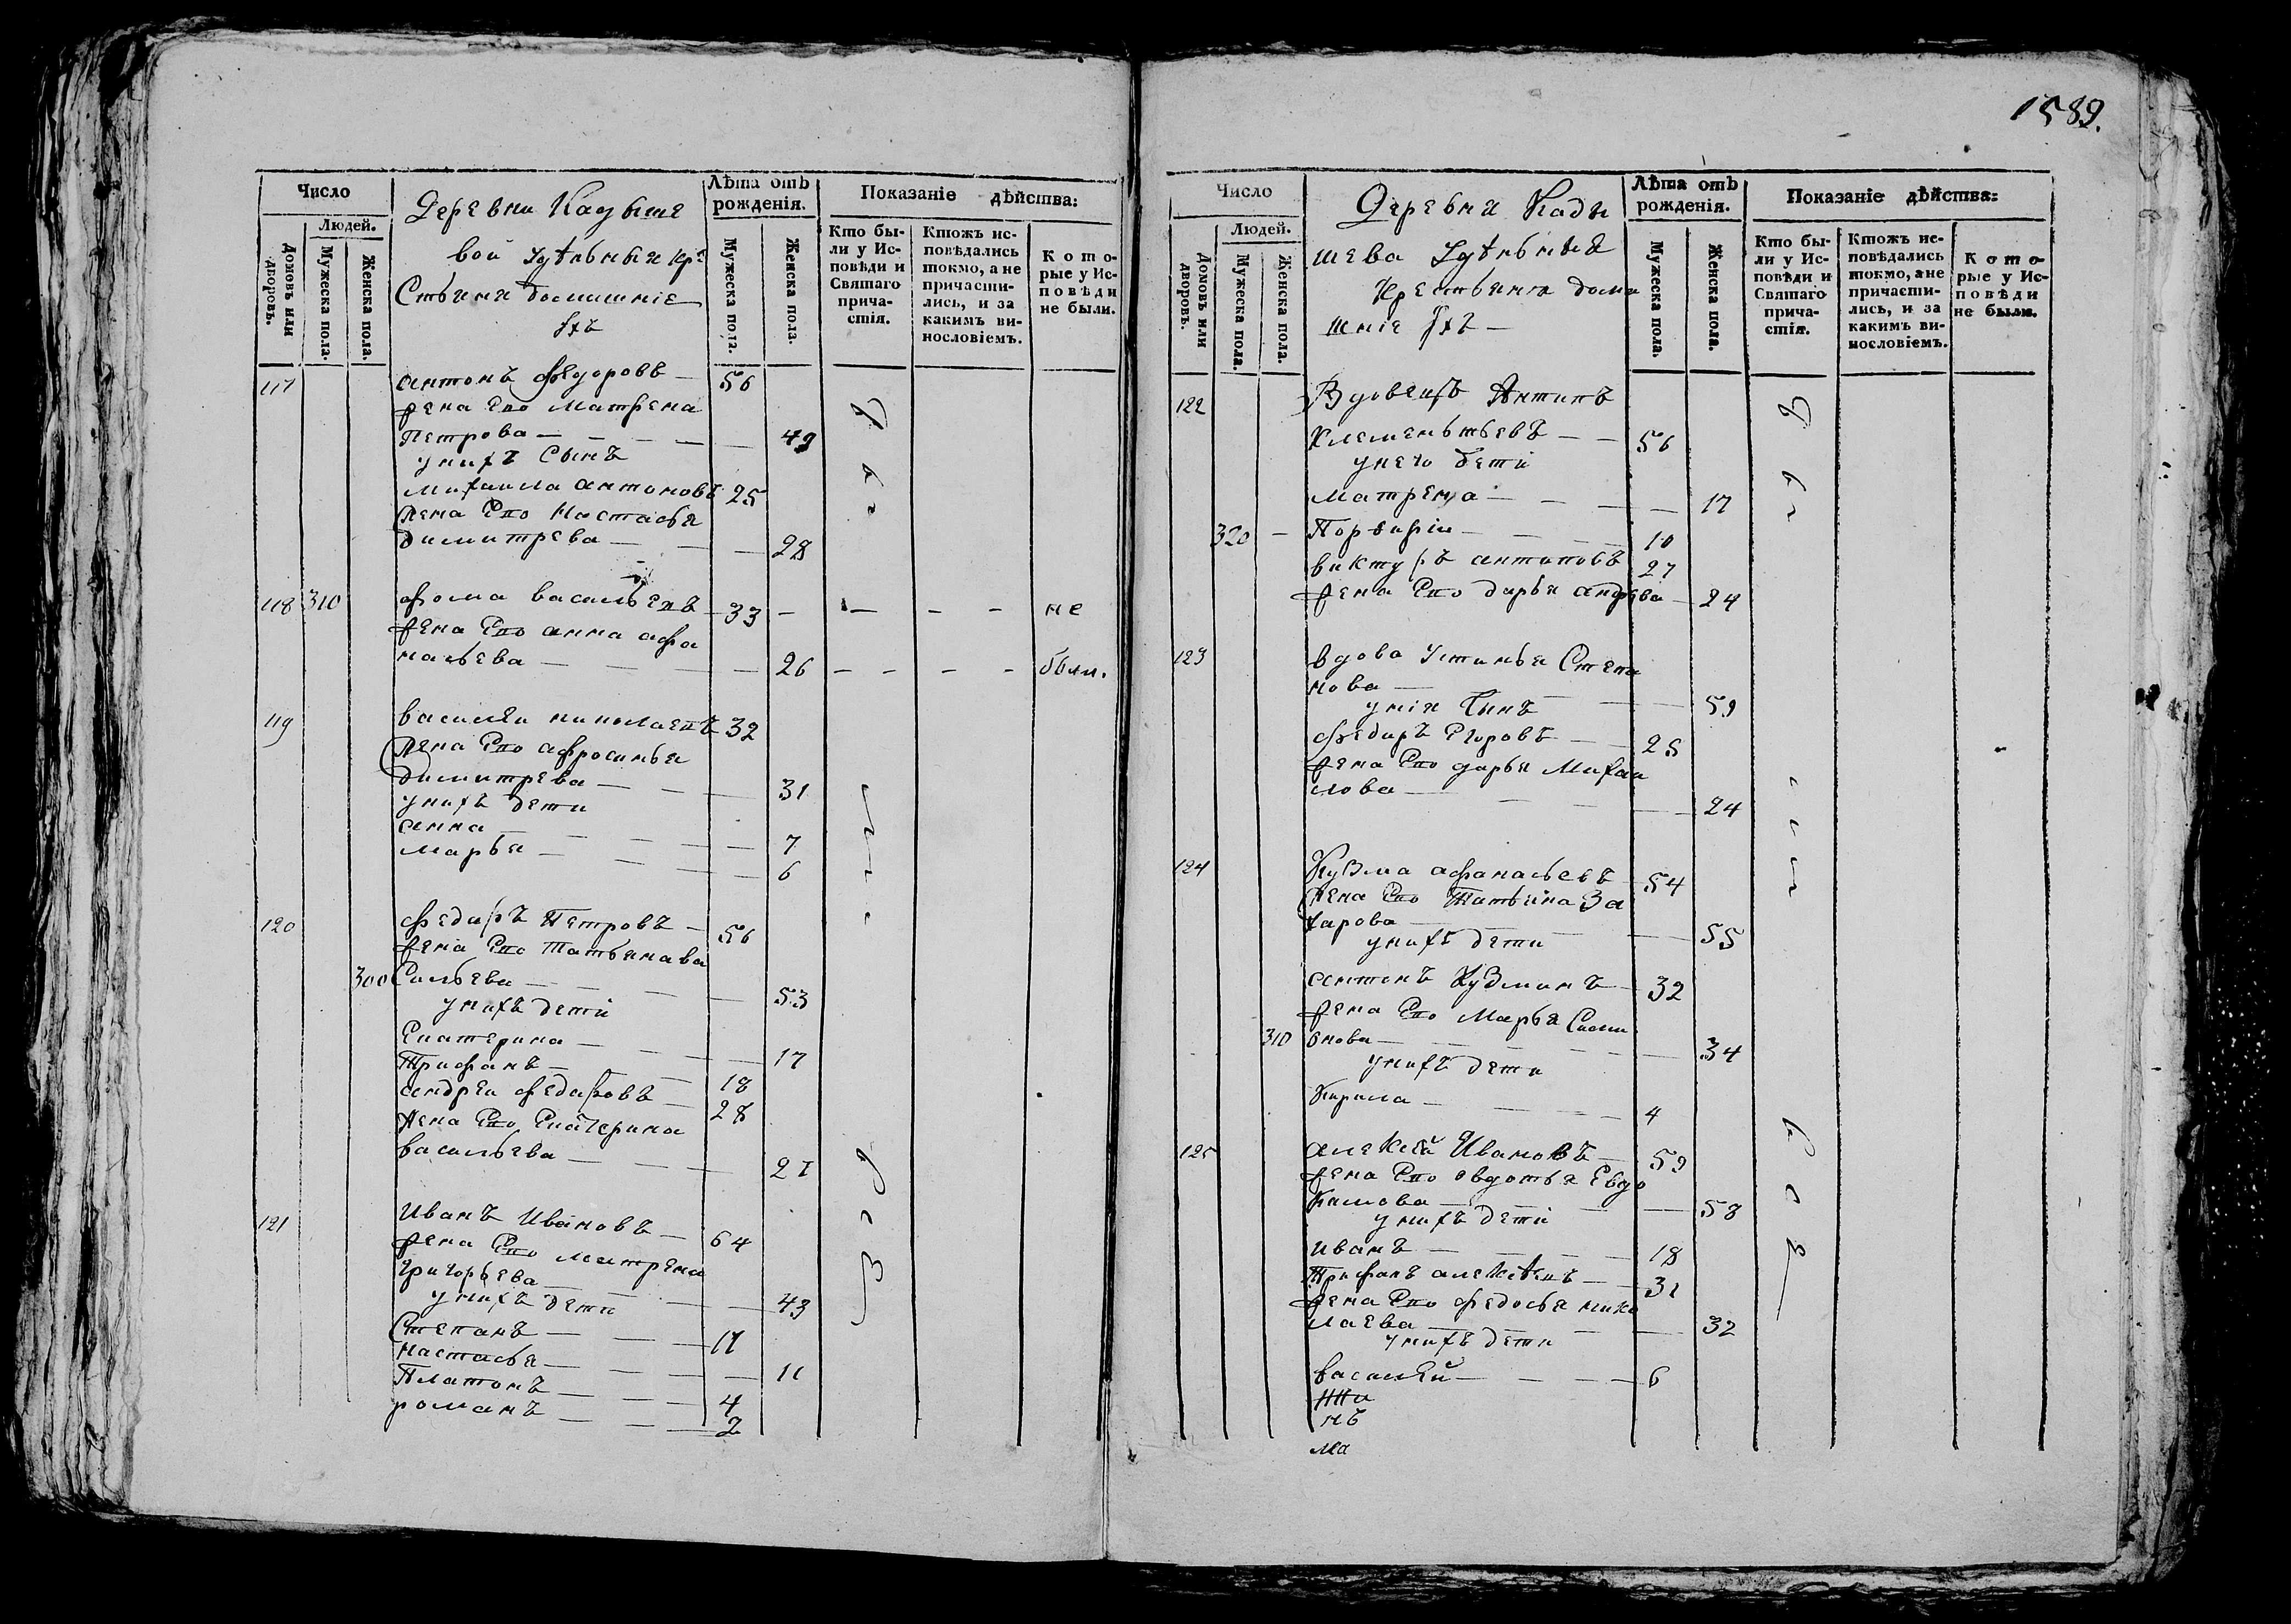 1589.
Число
Людей.
Домовъ или дворовъ.
Мужеска пола.
Женска пола.
Деревни Кадыше
вой удѣльныя кре
Стьяня домашние
ихъ
Лѣта отъ рожденія.
Мужеска пола.
Женска пола.
Показаніе дѣйства:
Кто бы-
ли у Ис-
повѣди и
Святаго
прича-
стія.
Ктожъ ис-
повѣдались
токмо, а не
причасти-
лись, и за
какимъ ви-
нословіемъ.
Кото-
рые у Ис-
повѣди
не были.
117 антонъ Федоровъ — 56
жена Его Матрена
Петрова — 49
у нихъ Сынъ
михаила антоновъ 25
жена Его Настасья
димитрева — 28
118 310 фома васильевъ — 33 — не
жена Его анна афа
насьева — 26 — были.
119 василеи николаевъ 32
жена Его афросинья
димитрева — 31
у нихъ дети
анна — 7
марья — 6
120 федиръ Петровъ — 56
жена Его татьянава
300 Сильева — 53
у нихъ дети
Екатерина — 17
Трифанъ — 18
андреи федаровъ — 28
жена Его Екатерина
васильева — 21
121 Иванъ Ивановъ — 64
жена Его матрена
григорьева — 43
у нихъ дети
Степанъ — 11
настасья — 11
Платонъ — 4
романъ — 2
Число
Людей.
Домовъ или дворовъ.
Мужеска пола.
Женска пола.
Деревни Кады
шева Удѣльныя
Крестьяня дома
шние ихъ —
Лѣта отъ рожденія.
Мужеска пола.
Женска пола.
Показаніе дѣйства:
Кто бы-
ли у Ис-
повѣди и
Святаго
прича-
стія.
Ктожъ ис-
повѣдались
токмо, а не
причасти-
лись, и за
какимъ ви-
нословіемъ.
Кото-
рые у Ис-
повѣди
не были.
122 Вдовецъ Антипъ
Клеменьтьевъ — 56
у него дети
матрена — 17
320 — Порфирiи — 10
виктуръ антиповъ 27
жена Его дарья андрева — 24
123 вдова Устинья Степа
нова — 59
у нiя Сынъ
федиръ Егоровъ — 25
жена Его дарья Михаи
лова — 24
124 Кузма афанасьевъ 54
жена Его Татьяна За
харова — 55
у нихъ дети
антонъ Кузминъ — 32
жена Его Марья Сими
310 онова — 34
у нихъ дети
Кирила — 4
125 алексѣй Ивановъ — 59
жена Его овдотья Евдо
кимова — 58
у нихъ дети
иванъ — 18
Трифанъ алексѣевъ — 31
жена Его федосья нико
лаева — 32
у нихъ дети
василѣй — 6
нъ
ма